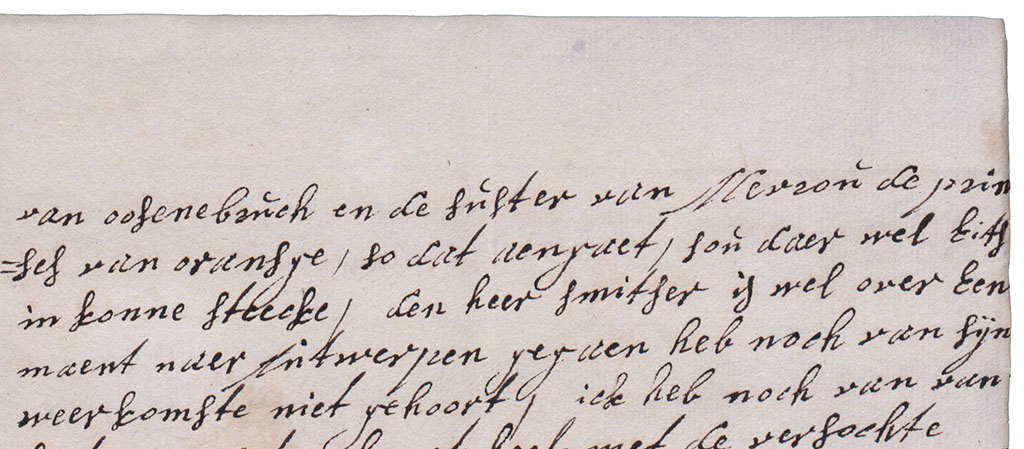 van oosenebruch en de suster van Mevrou de prin
=ses van oransye, so dat aengaet, sou daer wel iits
in konne steecke, den heer smitser is wel over een
maent naer Antwerpen gegaen heb noch van sÿn
weerkomste niet gehoort, ick heb noch van van
met de versochte